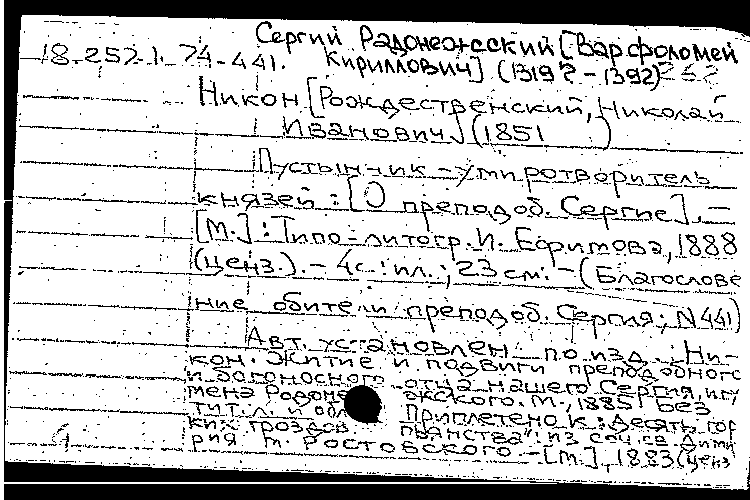 Сергий Радонежский [Варфоломей
18-252.1. 74-441. Кириллович] (1319? - 1392)
Никон [Рождественский, Николай
Иванович] (1851 )
Пустынник - умиротворитель
князей : [О преподоб. Сергие]. -
[М.] : Типо-литогр. И. Ефимова, 1888
(ценз.). - 4с. : ил. ; 23 см. - (Благослове
ние обители преподоб. Сергия; N 441)
Авт. установлен по изд.: Ни-
кон. Житие и подвиги преподобного
и богоносного отца нашего Сергия, игу
мена Радонежского. М., 1885. Без
тит. л. и обл. Приплетено к: Десять гор
ких гроздов пьянства: из соч. св. Дими
рия м. Ростовского - [М.], 1883 (ценз